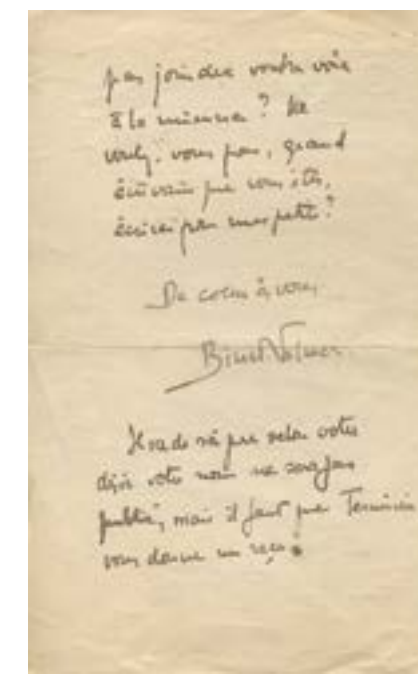 pas joindre votre voix
à la mienne ? Ne
voulez-vous pas, grand
écrivain que vous êtes,
écrire pour mes petits ?
De cœur à vous,
Binet-Valmer
Il va de soi que selon votre
désir votre nom ne sera pas
publié, mais il faut que
vous donne un reçu.